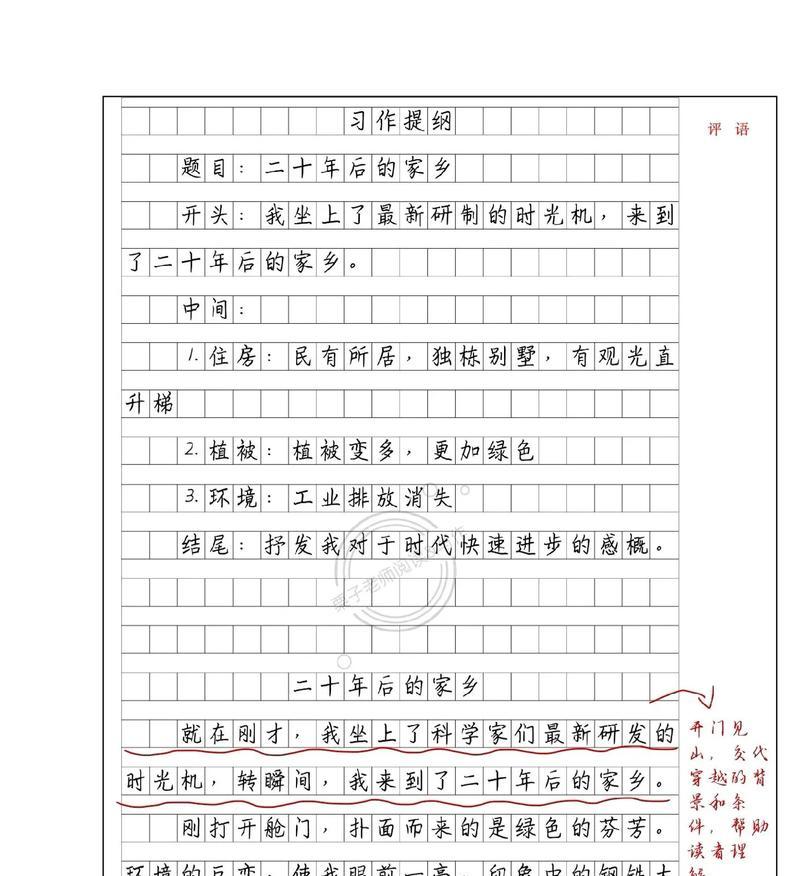 习作提纲
评 语
题目：二十年后的家乡
开头：我坐上了最新研制的时光机，来到
了二十年后的家乡。
中间：
1. 住房：民有所居，独栋别墅，有观光直
升梯
2. 植被：植被变多，更加绿色
3. 环境：工业排放消失
结尾：抒发我对于时代快速进步的感概。
栗子老师阅读
二十年后的家乡
就在刚才，我坐上了科学家们最新研发的
时光机，转瞬间，我来到了二十年后的家乡。
刚打开舱门，扑面而来的是绿色的芬芳。
环境的巨变，使我眼前一亮，印象中的钢铁大
开门见
山，交代
穿越的背
景和条
件，帮助
读者理
解